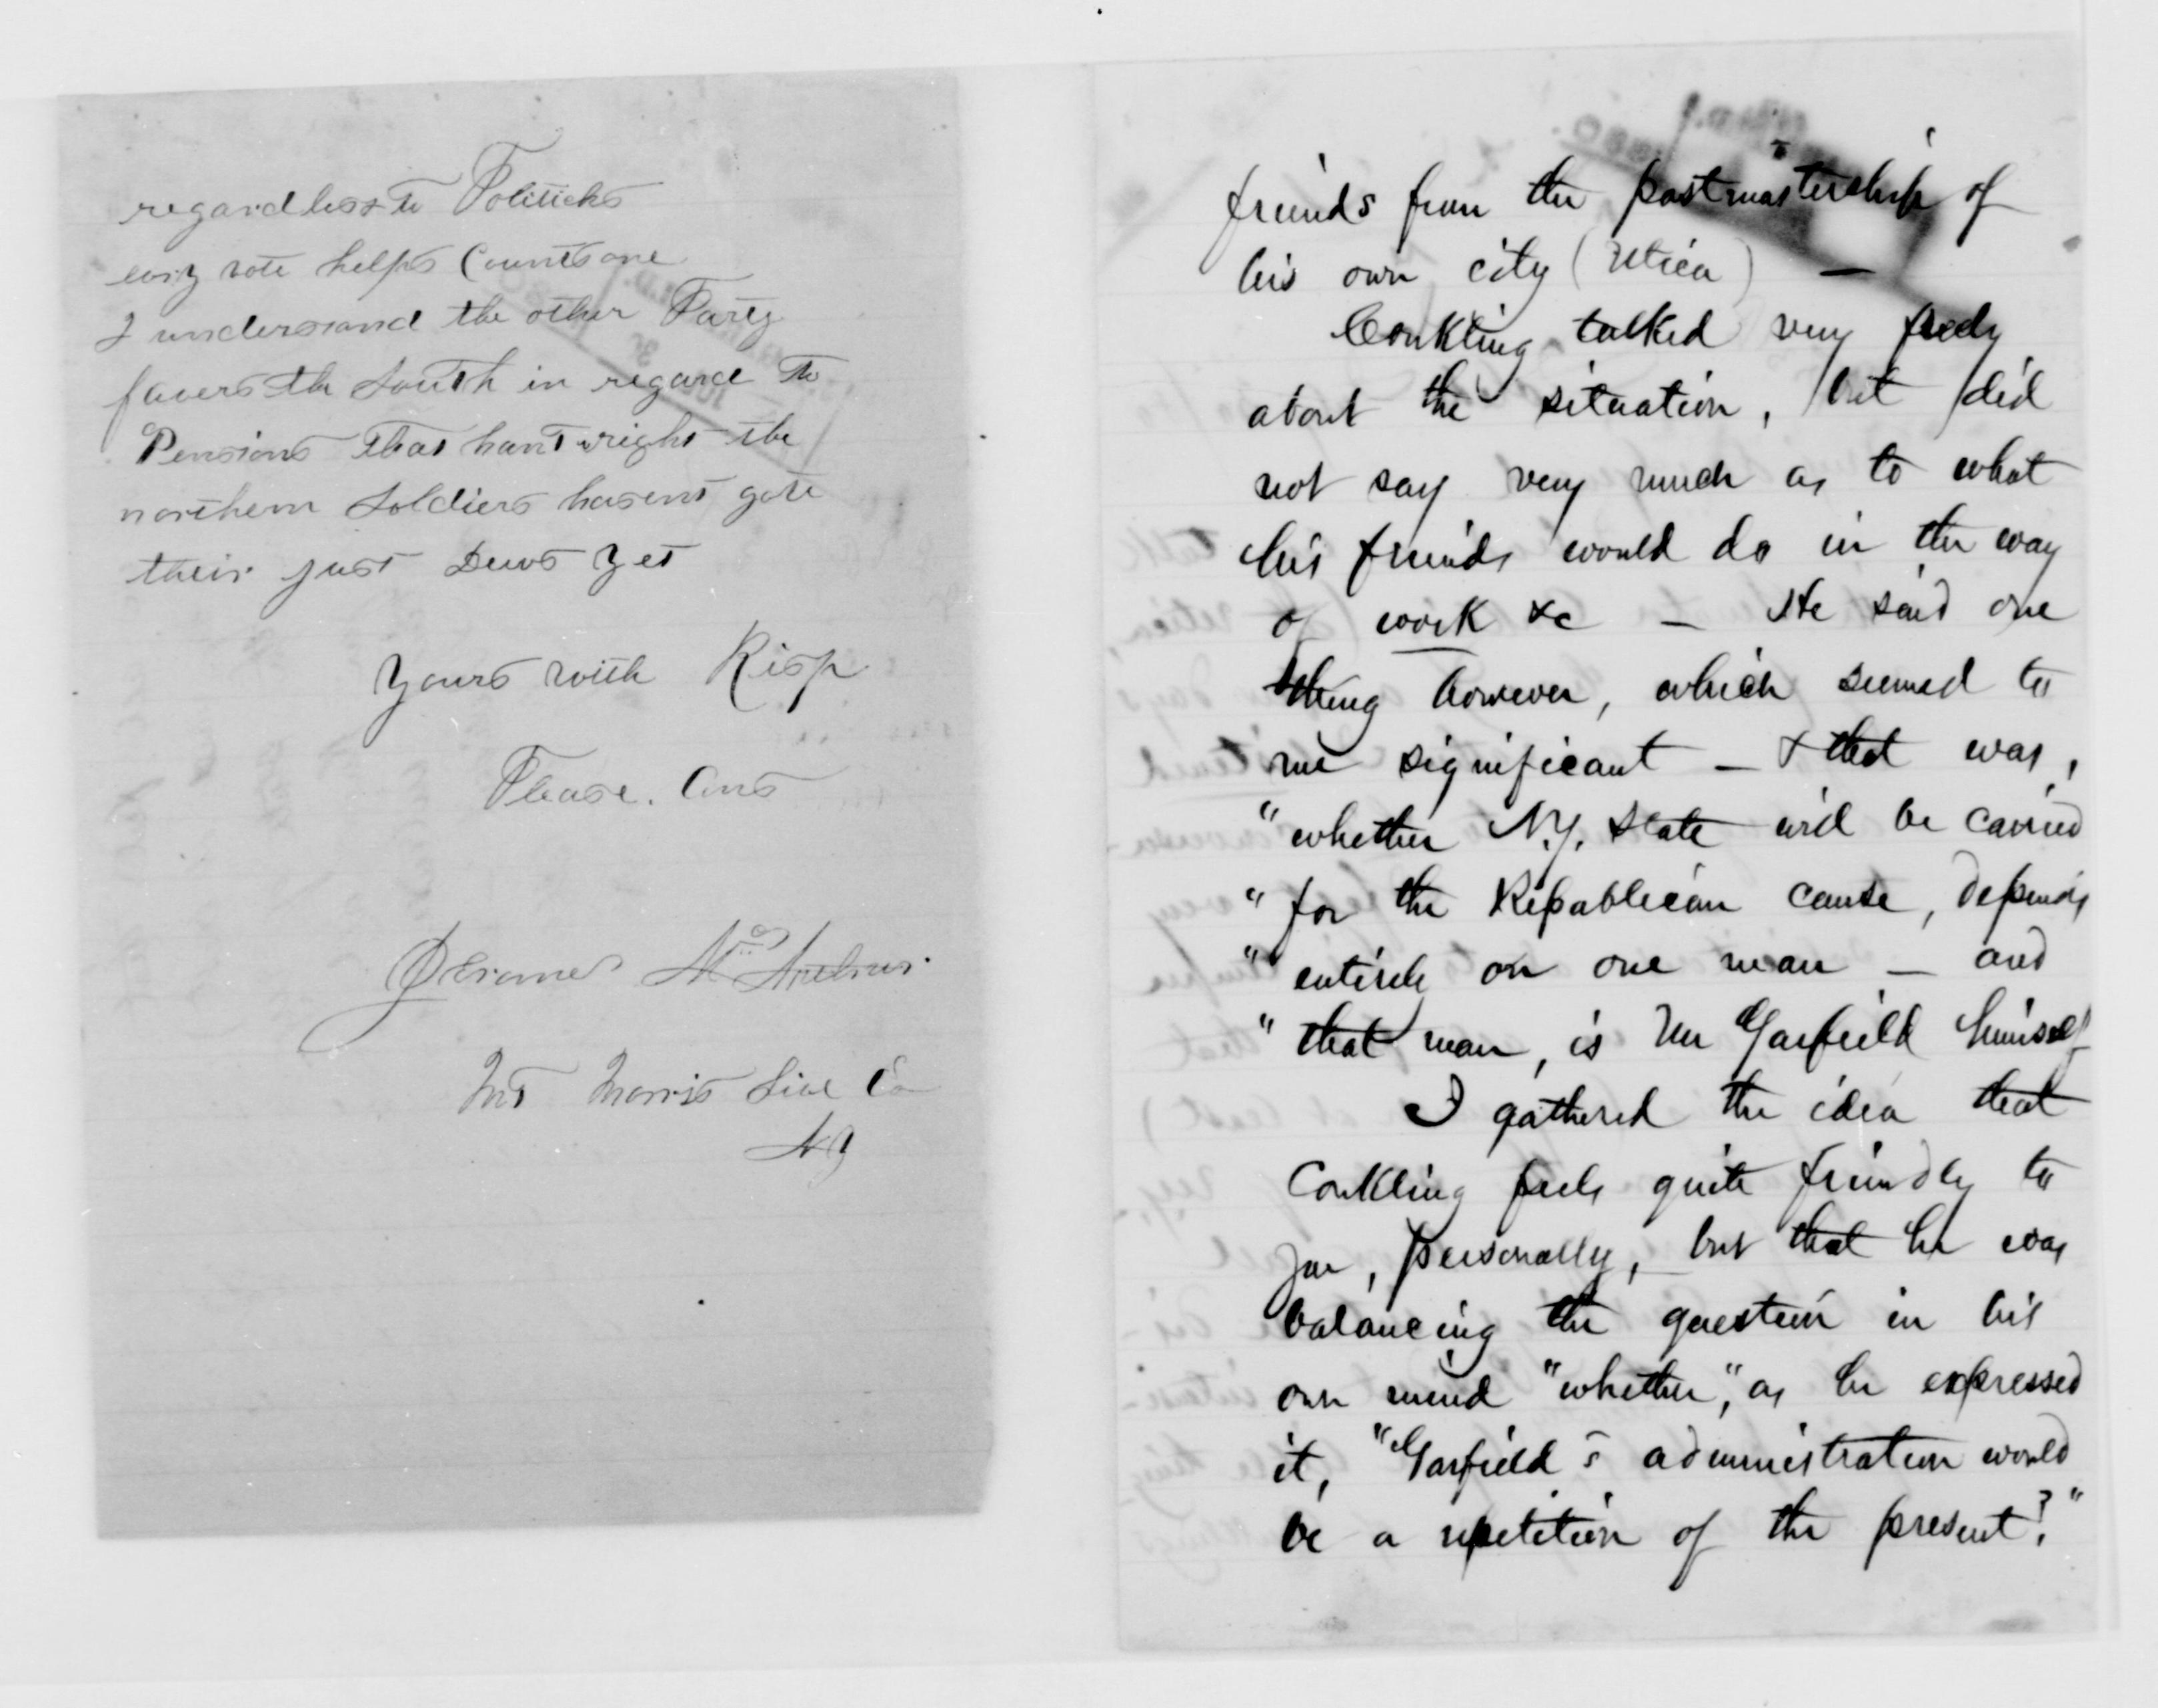 regardless to Politicks
evry vote helps Counts one
I understand the other Party
favers the South in regard To
Pensions That hant wright the
northern Soldiers hasent gote
their just Dews Yet
Yours with Risp
Please. Ans
Jerome
Mt Morris Livi Co
N Y
friends from the postmastership of
his own city (Utica) —
Conkling talked very freely
about the situation, but did
not say very much as to what
his friends would do in the way
of work &c — He said one
thing however, which seemed to
me significant — & that was,
"whether N.Y. State will be carried
"for the Republican cause, depends
"entirely on one man — and
"that man, is Mr Garfield himself
I gathered the idea that
Conkling feels quite friendly to
you, personally, but that he was
balancing the question in his
own mind "whether", as he expressed
it, "Garfield's administration would
be a repetition of the present?"